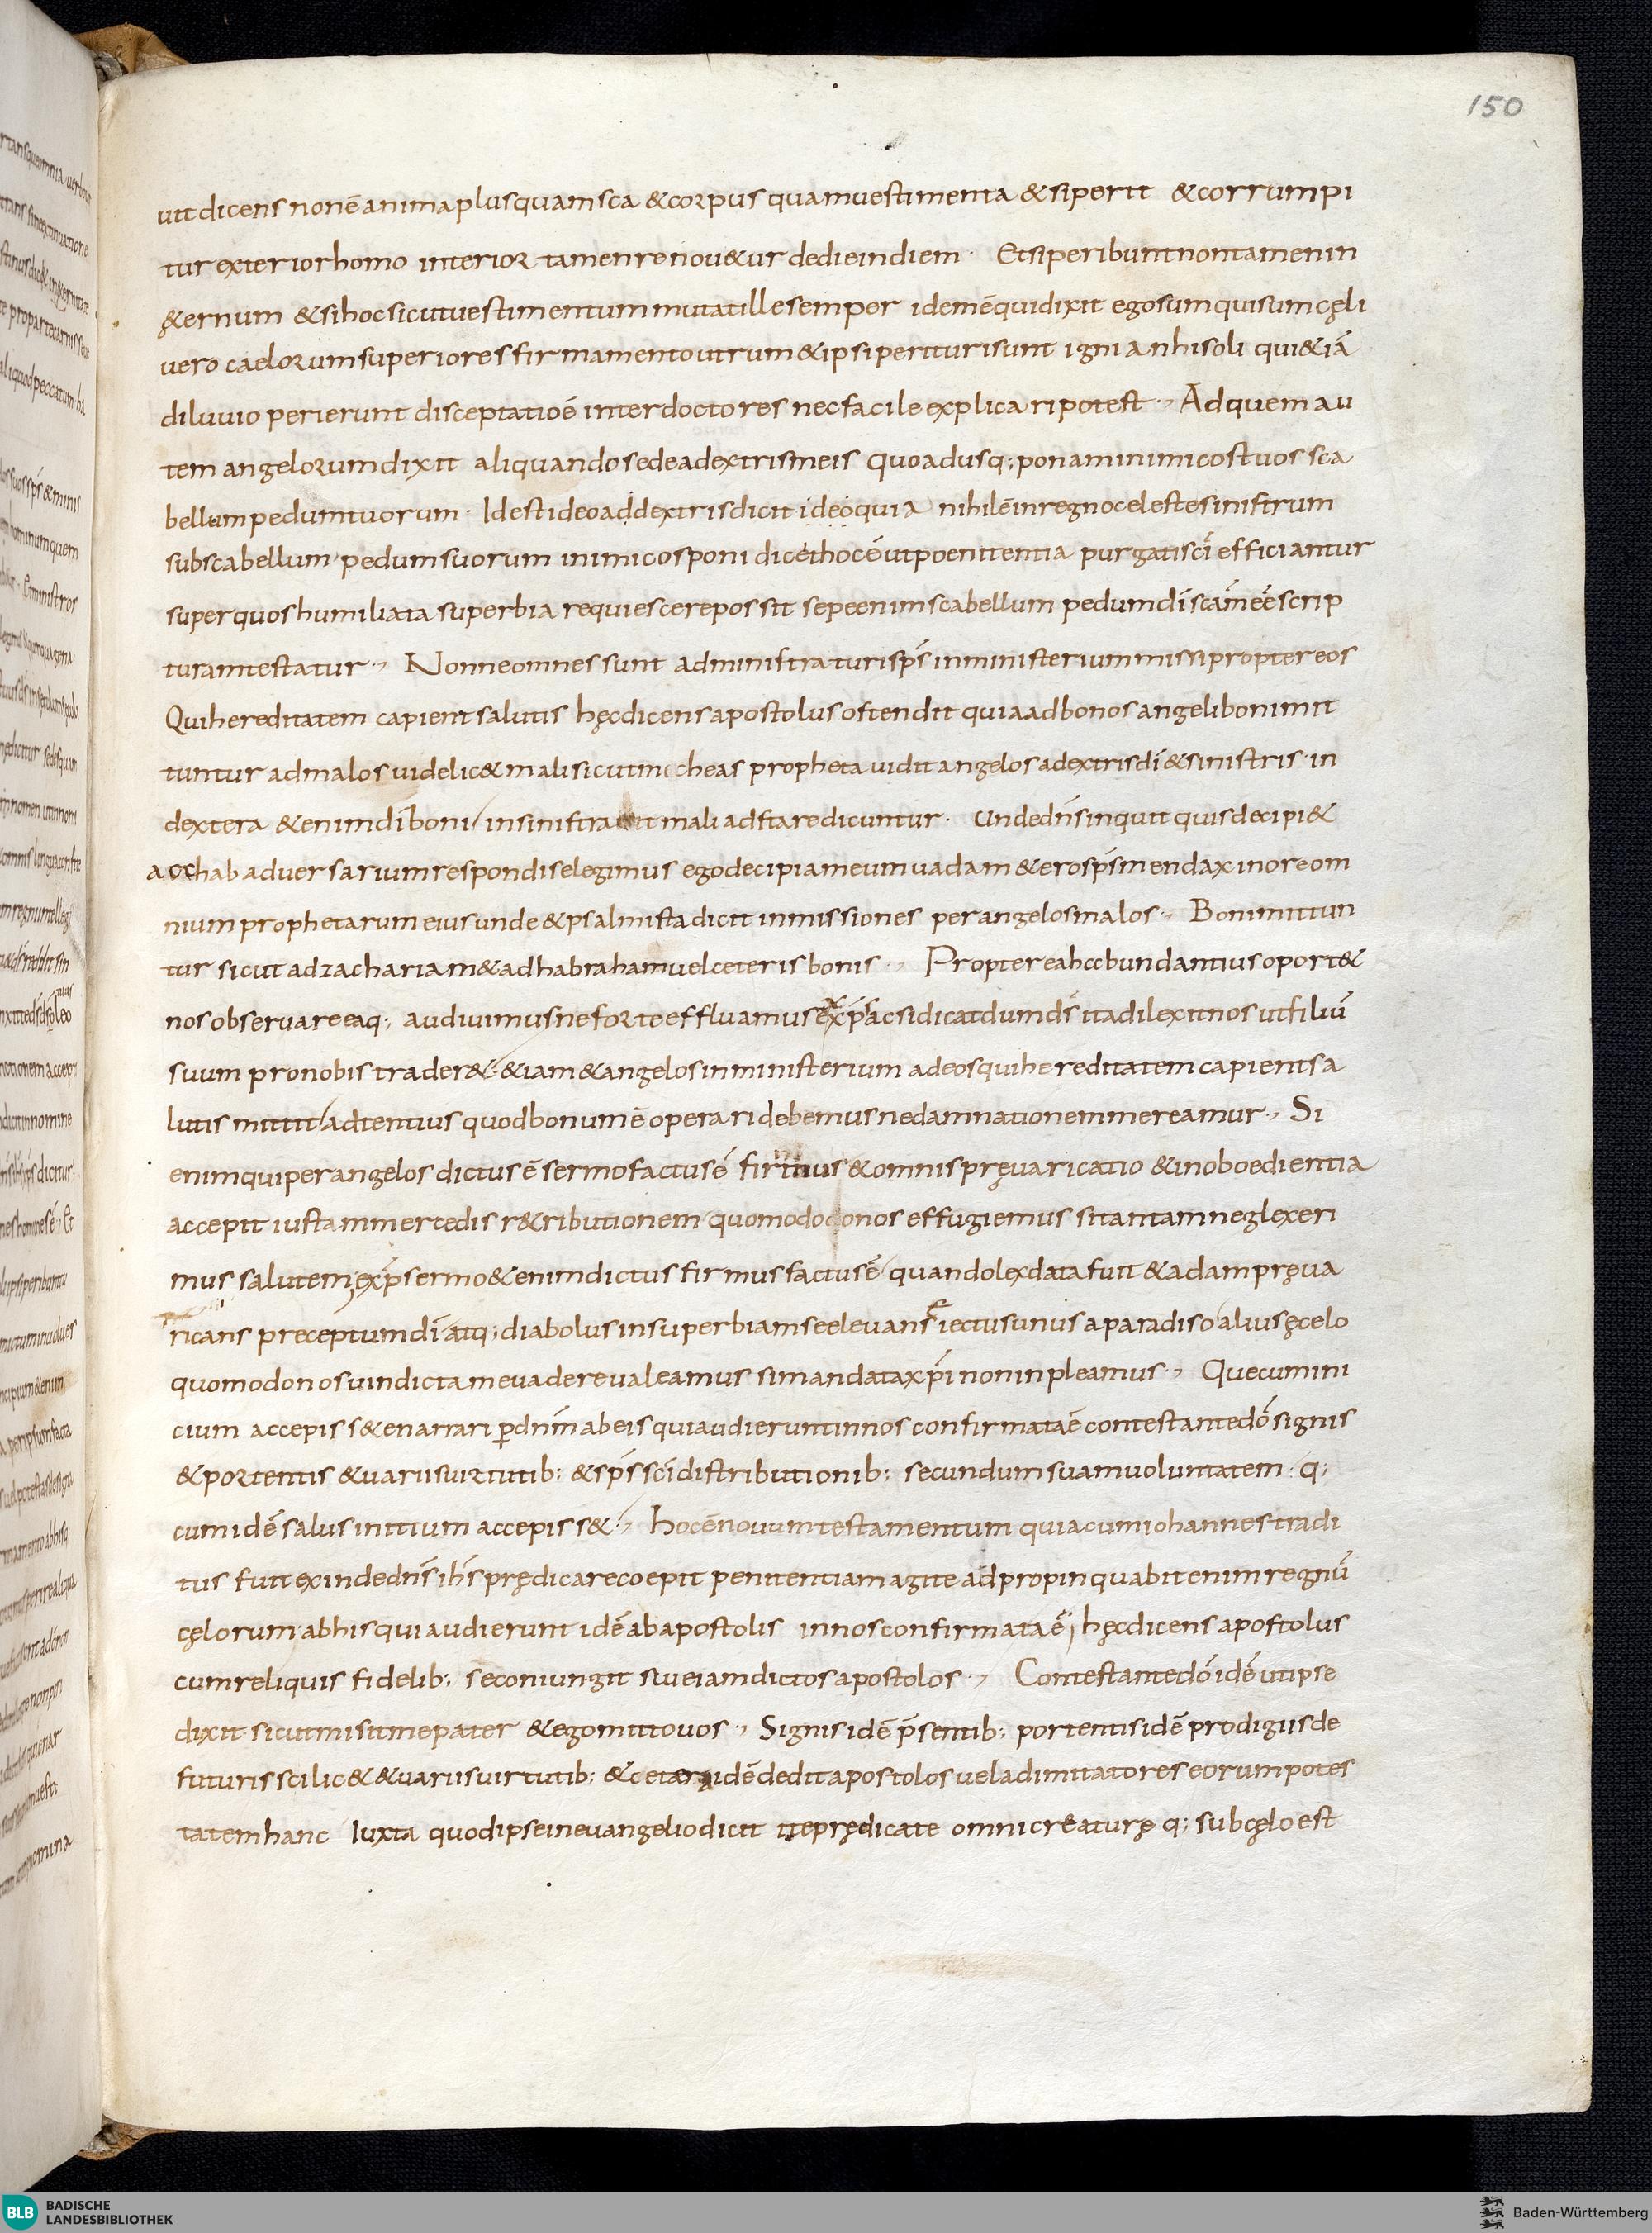 150
uit dicens non ē anima plus quam sca & corpus quam uestimenta & si perit & corrumpi
tur exterior homo interior tamen renou&ur de die in diem · Et si peribunt non tamen in
&ernum & si hoc sicut uestimentum mutat ille semper idem ē qui dixit ego sum qui sum cęli
uero caelorum superiores firmamento utrum & ipsi perituri sunt igni an hi soli qui &iā
diluuio perierunt disceptatio ē inter doctores nec facile explicari potest ·, Ad quem au
tem angelorum dixit aliquando sede a dextris meis quo adusq; ponam inimicos tuos sca
bellum pedum tuorum · Id est ideo ad dextris dicit ideo quia nihil ē in regno celeste sinistrum
sub scabellum pedum suorum inimicos poni dicet hoc ē ut poenitentia purgati sci efficiantur
super quos humiliata superbia requiescere possit sepe enim scabellum pedum di scam eē scrip
turam testatur ·, Nonne omnes sunt administraturi sps in ministerium missi propter eos
Qui hereditatem capient salutis hęc dicens apostolus ostendit quia ad bonos angeli boni mit
tuntur ad malos uidelic& mali sicut micheas propheta uidit angelos a dextris di & sinistris · in
dextera &enim di boni in sinistra mali adstare dicuntur · Unde dns inquit quis decipi&
aochab aduersarium respondisse legimus ego decipiam eum uadam & ero sps mendax in ore om
nium prophetarum eius unde & psalmista dicit inmissiones per angelos malos ·, Boni mittun
tur sicut ad zachariam & ad habraham uel ceteris bonis ·, Propterea habundantius oport&
nos obseruare eaq; audiuimus ne forte effluamus exp ac si dicat dum ds ita dilexit nos ut filiū
suum pro nobis trader& &iam & angelos in ministerium ad eos qui hereditatem capient sa
lutis mittit adtentius quod bonum ē operari debemus ne damnationem mereamur ·, Si
enim qui per angelos dictus ē sermo factus ē firmus & omnis pręuaricatio & inoboedientia
accepit iustam mercedis r&ributionem quomodo nos effugiemus si tantam neglexeri
mus salutem exp sermo &enim dictus firmus factus ē quando lex data fuit & adam pręua
ricans preceptum di atq; diabolus in superbiam se eleuans eiectus unus a paradiso alius ę celo
quomodo nos uindictam euadere ualeamus si mandata xpi non inpleamus ·, Que cum ini
cium accepiss& enarrari p dnm ab eis qui audierunt in nos confirmata ē contestante dō signis
& portentis & uariis uirtutib; & sps sci distributionib; secundum suam uoluntatem · q;
cum idē salus initium accepiss& ·, hoc ē nouum testamentum quia cum iohannes tradi
tus fuit exinde dns ihs prędicare coepit penitentiam agite adpropinquabit enim regnū
cęlorum ab his qui audierunt idē ab apostolis in nos confirmata ē hęc dicens apostolus
cum reliquis fidelib; se coniungit siue iam dictos apostolos ·, Contestante dō idē ut ipse
dixit · sicut misit me pater & ego mitto uos ·, Signis idē psentib; portentis idē prodigiis de
futuris scilic& & uariis uirtutib; & cetera idē dedit apostolos uel ad imitatores eorum potes
tatem hanc Iuxta quod ipse in euangelio dicit ite prędicate omni creaturę q; sub cęlo est
BLB
BADISCHE
LANDESBIBLIOTHEK
Baden-Württemberg